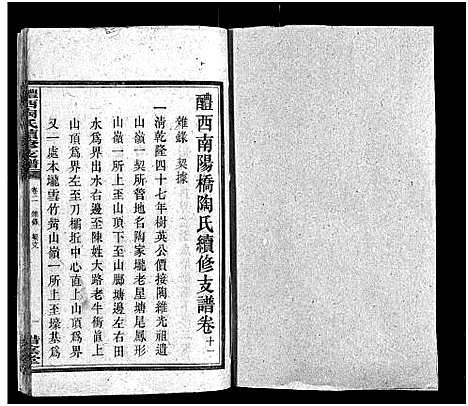 醴西南陽橋陶氏續修支譜卷十一
雜錄 契據
一清乾隆四十七年樹英公價接陶維光祖遺
山嶺一契所管地名陶家壠老屋塘尾鳳形
山嶺一所上至山頂下至山腳塘邊左右田
水為界出水右邊至陳姓大路老牛衝直上
山頂為界左至刀樋折中心直上山頂為界
又一處本壠雪竹山嶺一所上至壕基為
醴西陶氏續修支譜
卷十一 雜錄 契文
一